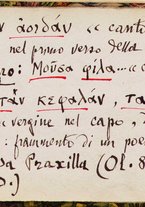 ν ἀοιδὰν « canto
nel primo verso della
ro: Μοῦσα φίλα... «
τὰν κεφαλάν, τα
vergine nel capo,
: frammento di un poe
sa Praxilla (Ol. 8
).)